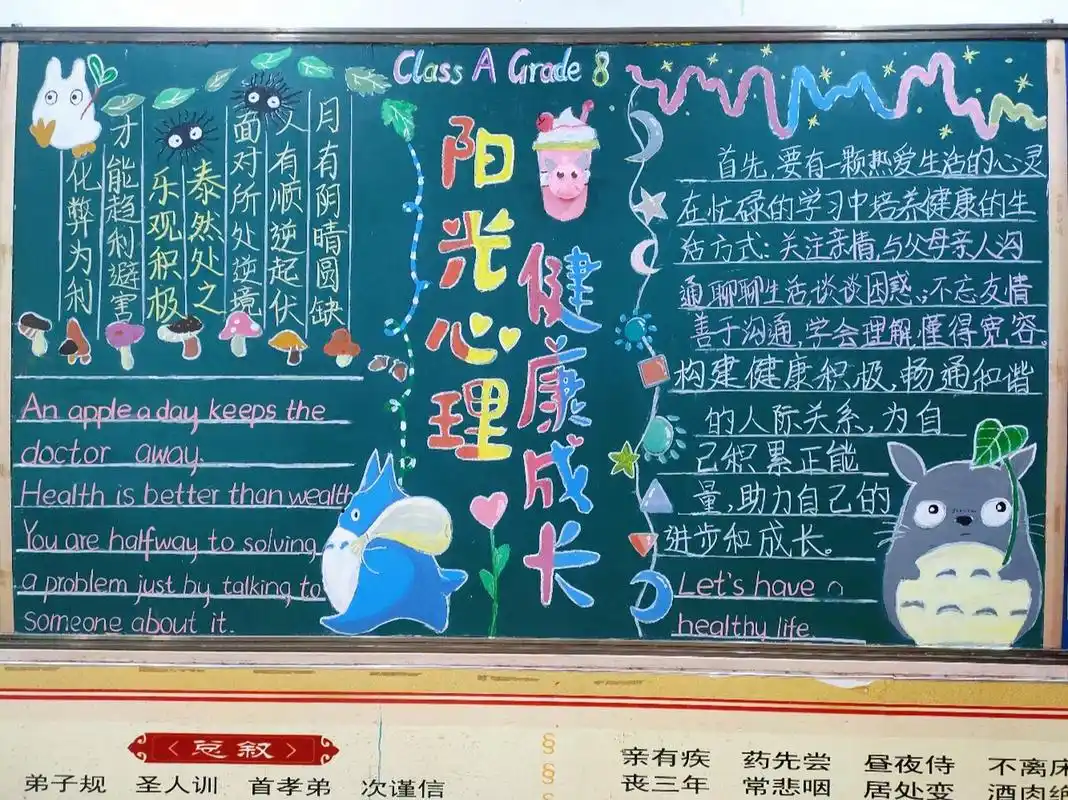 Class A Grade 8
阳光心理
健康成长
月有阴晴圆缺
人有顺逆起伏
面对所处逆境
泰然处之
乐观积极
才能趋利避害
化弊为利
An apple a day keeps the
doctor away.
Health is better than wealth
You are halfway to solving
a problem just by talking to
someone about it.
首先,要有一颗热爱生活的心灵
在忙碌的学习中培养健康的生
活方式:关注亲情,与父母亲人沟
通聊聊生活谈谈困惑;不忘友情
善于沟通,学会理解,懂得宽容。
构建健康积极,畅通和谐
的人际关系,为自
己积累正能
量,助力自己的
进步和成长。
Let's have a
healthy life.
总叙
弟子规 圣人训 首孝弟 次谨信
亲有疾 药先尝 昼夜侍 不离床
丧三年 常悲咽 居处变 酒肉绝